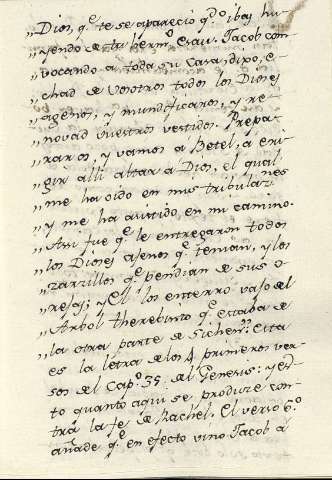 „Dios, q.e te se apareció q.do ibas hu-
„yendo de tu herm.o Esau. Jacob con-
„vocando a toda su Casa dixo, e-
„chad de vosotros todos los Dioses
„agenos, y mundificaos, y re-
„novad vuestros vestidos. Prepa-
„raros, y vamos a Betel, a eri-
„gir alli altar a Dios, el qual
„me ha oido en mis tribulaz.nes
„y me ha asistido en mi camino.
„Asi fue q.e le entregaron todos
„los Dioses agenos q.e tenian, y los
„zarzillos q.e pendian de sus o-
„rejas; y El los enterró vajo del
„Arbol therebinto q.e estaba de
„la otra parte de Sichem. Esta
es la letra de los 4 primeros ver-
sos del Cap.o 35 del Genesis: y es-
to quanto aqui se produce con-
tra la fe de Rachel. El verso 6.o
añade q.e en efecto vino Jacob á